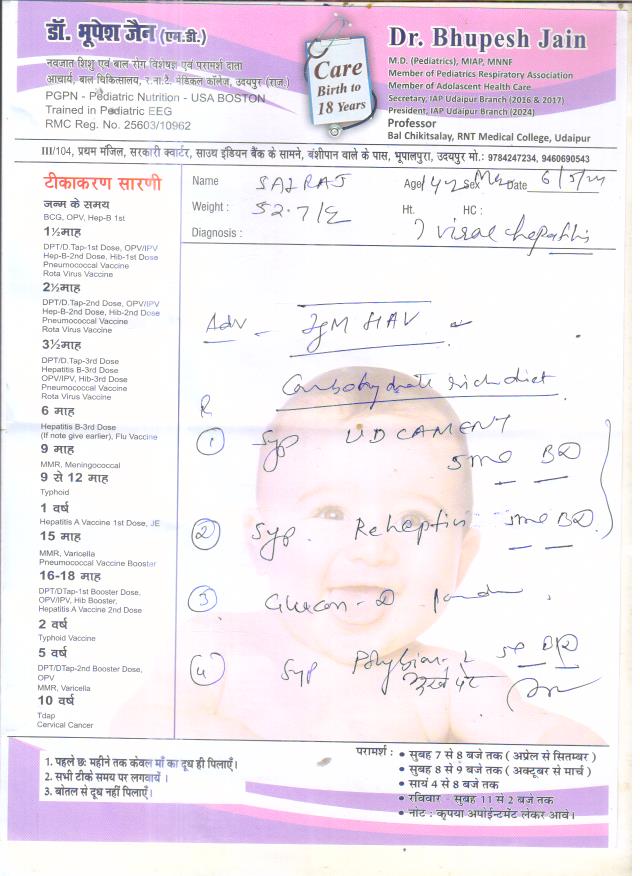 डॉ. भूपेश जैन (एम.डी.)
नवजात शिशु एवं बाल रोग विशेषज्ञ एवं परामर्श दाता
आचार्य, बाल चिकित्सालय, र.ना.टै. मेडिकल कॉलेज, उदयपुर (राज.)
PGPN - Pediatric Nutrition - USA BOSTON
Trained in Pediatric EEG
RMC Reg. No. 25603/10962
Care
Birth to
18 Years
Dr. Bhupesh Jain
M.D. (Pediatrics), MIAP, MNNF
Member of Pediatrics Respiratory Association
Member of Adolescent Health Care
Secretary, IAP Udaipur Branch (2016 & 2017)
President, IAP Udaipur Branch (2024)
Professor
Bal Chikitsalay, RNT Medical College, Udaipur
III/104, प्रथम मंजिल, सरकारी क्वार्टर, साउथ इंडियन बैंक के सामने, बंशीपान वाले के पास, भूपालपुरा, उदयपुर मो.: 9784247234, 9460690543
टीकाकरण सारणी
जन्म के समय
BCG, OPV, Hep-B 1st
1½माह
DPT/D.Tap-1st Dose, OPV/IPV
Hep-B-2nd Dose, Hib-1st Dose
Pneumococcal Vaccine
Rota Virus Vaccine
2½माह
DPT/D.Tap-2nd Dose, OPV/IPV
Hep-B-2nd Dose, Hib-2nd Dose
Pneumococcal Vaccine
Rota Virus Vaccine
3½माह
DPT/D.Tap-3rd Dose
Hepatitis B-3rd Dose
OPV/IPV, Hib-3rd Dose
Pneumococcal Vaccine
Rota Virus Vaccine
6 माह
Hepatitis B-3rd Dose
(If note give earlier), Flu Vaccine
9 माह
MMR, Meningococcal
9 से 12 माह
Typhoid
1 वर्ष
Hepatitis A Vaccine 1st Dose, JE
15 माह
MMR, Varicella
Pneumococcal Vaccine Booster
16-18 माह
DPT/DTap-1st Booster Dose,
OPV/IPV, Hib Booster,
Hepatitis A Vaccine 2nd Dose
2 वर्ष
Typhoid Vaccine
5 वर्ष
DPT/DTap-2nd Booster Dose,
OPV
MMR, Varicella
10 वर्ष
Tdap
Cervical Cancer
Name SAIRAJ Age 14 Sex Date 6/5/24
Weight : 52.7 Ht. HC :
Diagnosis : ? viral hepatitis
Adv - IgM HAV
Carbohydrate rich diet
R
1 Syp UDCAMENT
5ml BD
2 Syp. Reheptin 5ml BD
3 Glucon-D
4 Syp Polybion-L BD
1. पहले छः महीने तक केवल माँ का दूध ही पिलाएँ।
2. सभी टीके समय पर लगवायें ।
3. बोतल से दूध नहीं पिलाएँ।
परामर्श : • सुबह 7 से 8 बजे तक ( अप्रेल से सितम्बर )
• सुबह 8 से 9 बजे तक ( अक्टूबर से मार्च )
• सायं 4 से 8 बजे तक
• रविवार - सुबह 11 से 2 बजे तक
• नोट : कृपया अपोईन्टमेंट लेकर आवे।